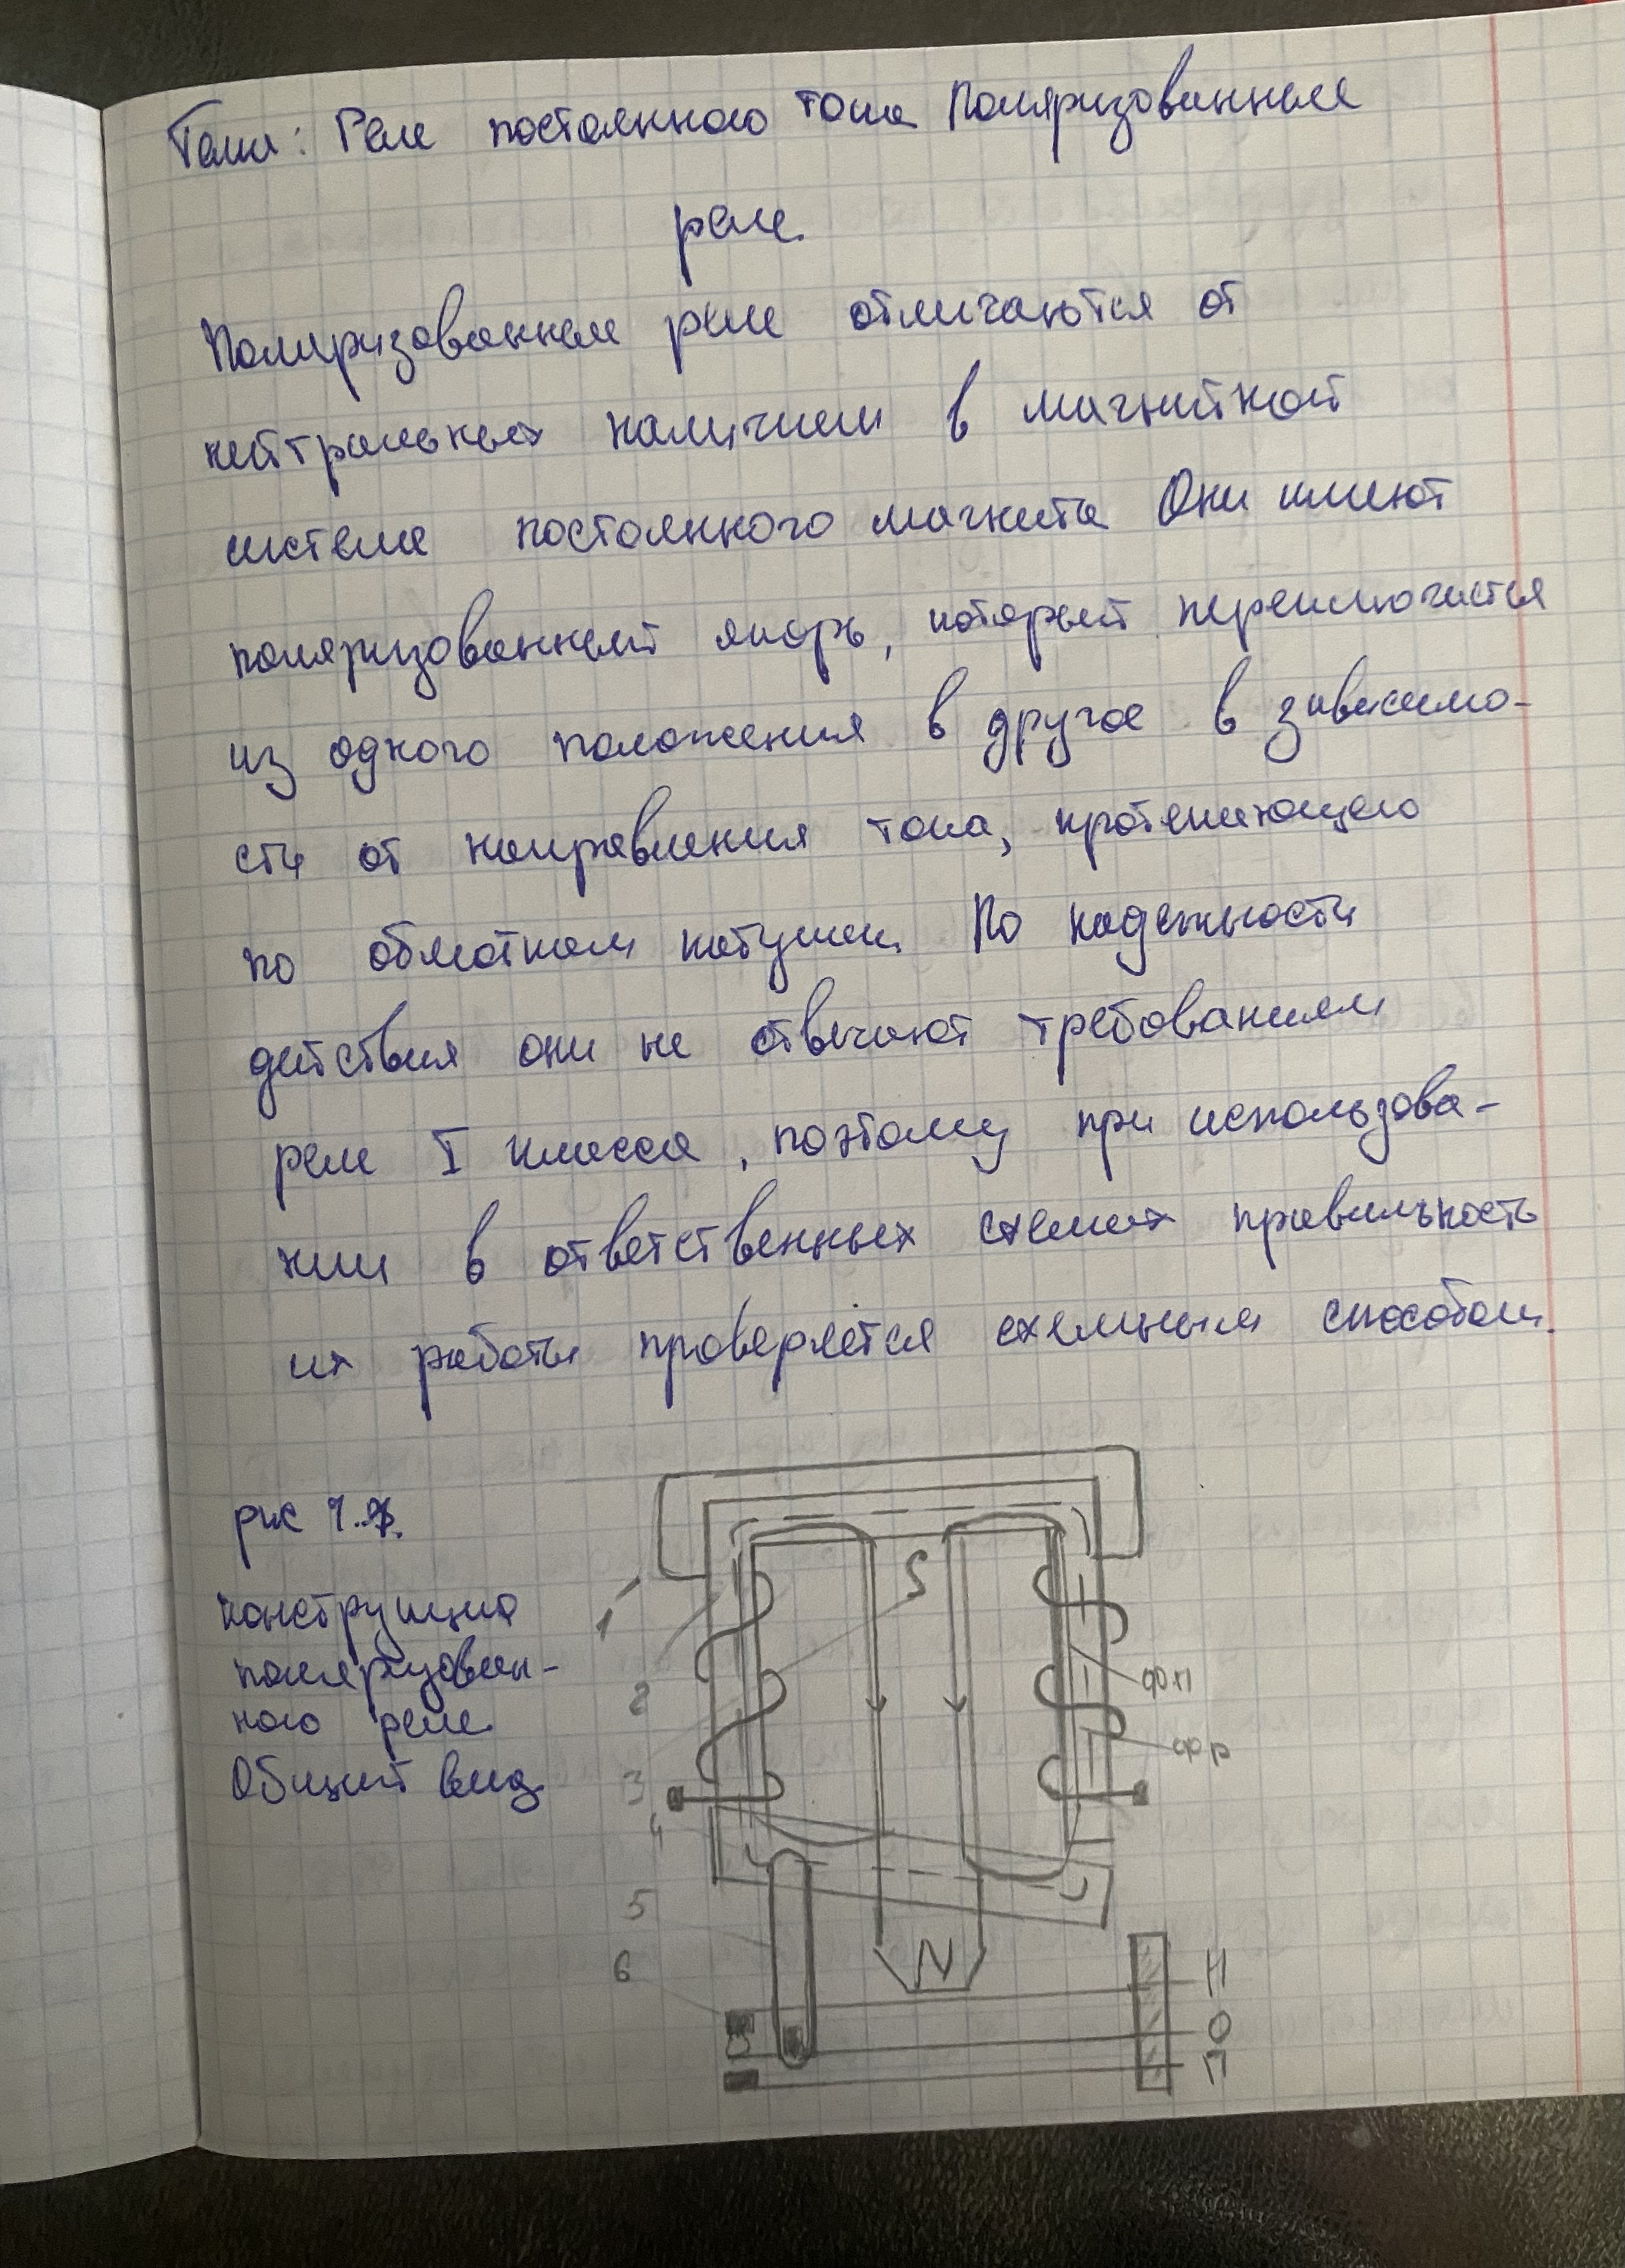 Тема: Реле постоянного тока Поляризованные
реле.
Поляризованные реле отличаются от
нейтральных наличием в магнитной
системе постоянного магнита Они имеют
поляризованный якорь, который переключается
из одного положения в другое в зависимо-
сти от направления тока, протекающего
по обмоткам катушек. По надежности
действия они не отвечают требованиям
реле I класса, поэтому при использова-
нии в ответственных схемах правильность
их работы проверяется схемным способом.
рис
конструкция
поляризован-
ного реле.
Общий вид.
S
1
2
3
4
5
6
N
Н
О
П